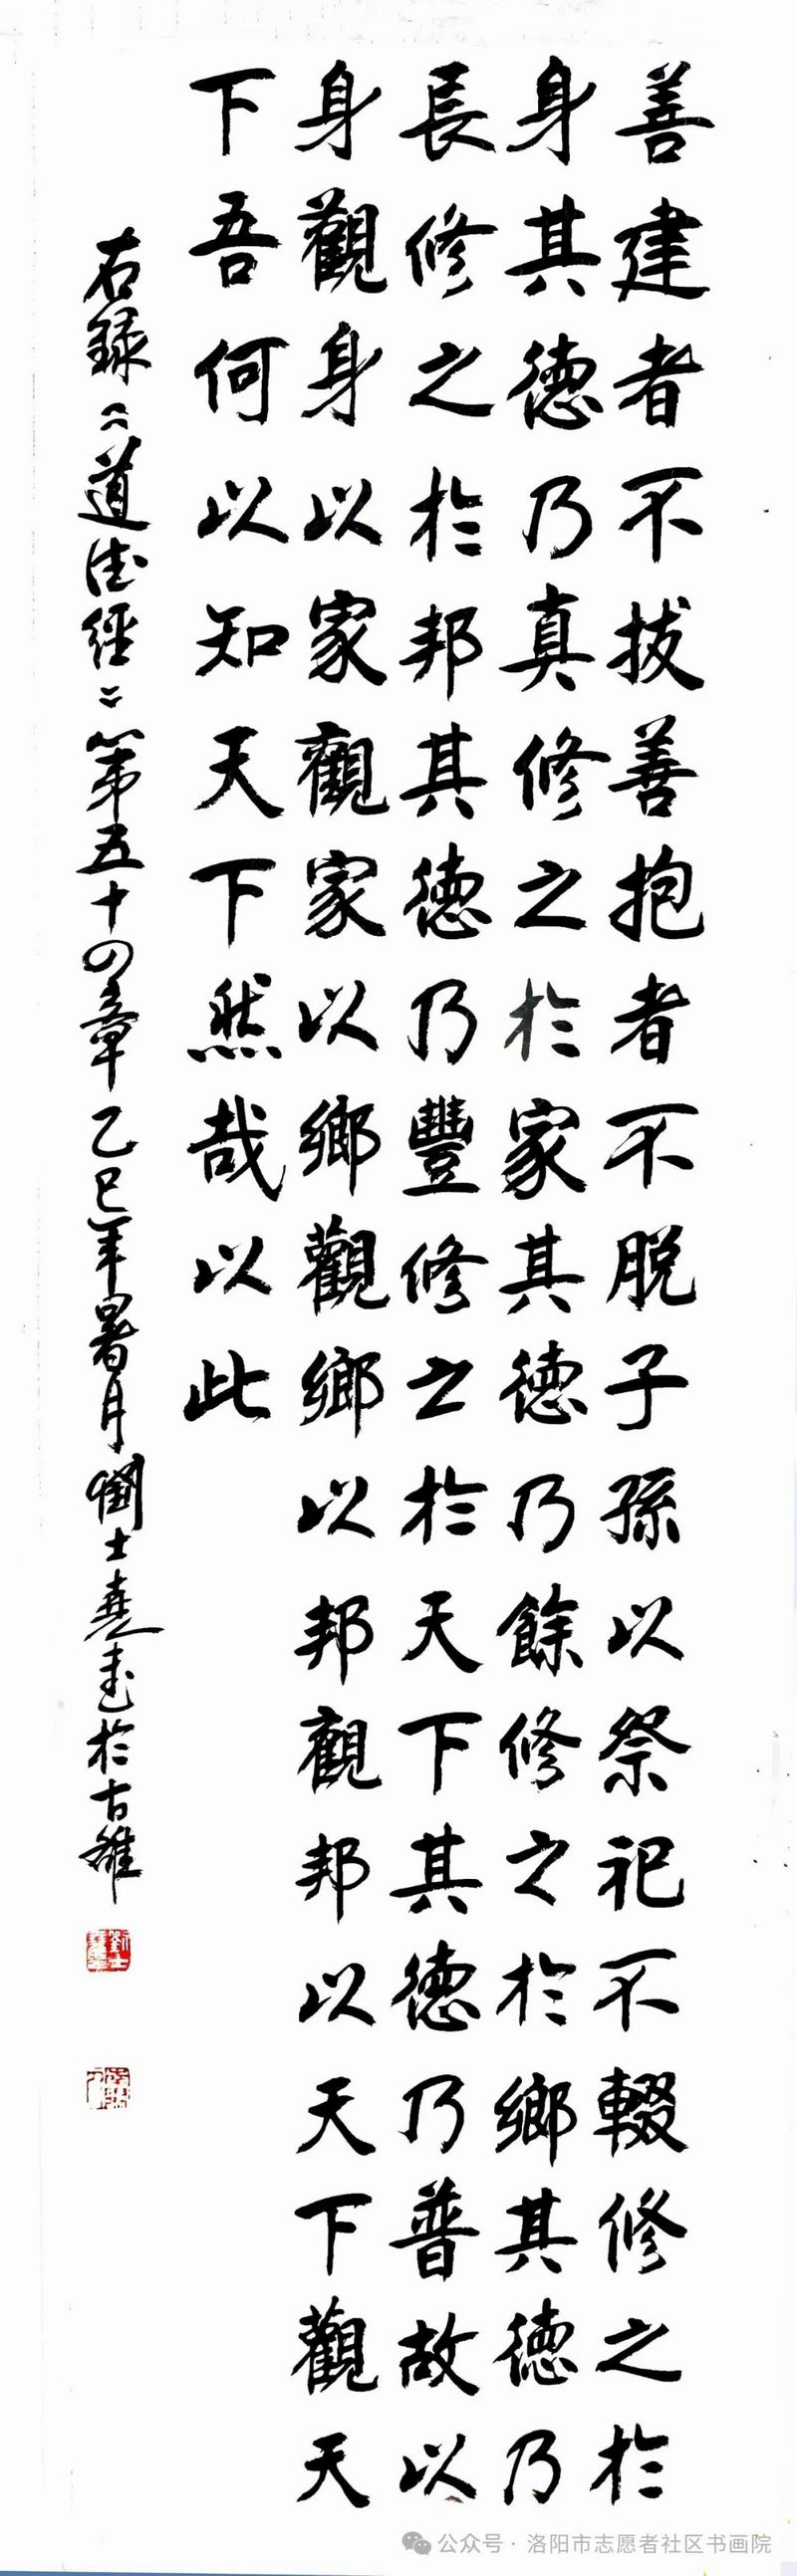 善建者不拔善抱者不脱子孫以祭祀不輟修之於
身其德乃真修之於家其德乃餘修之於鄉其德乃
長修之於邦其德乃豐修之於天下其德乃普故以
身觀身以家觀家以鄉觀鄉以邦觀邦以天下觀天
下吾何以知天下然哉以此
右録《道德經》第五十四章乙巳年暑月劉士堯書於古雒
公众号·洛阳市志愿者社区书画院